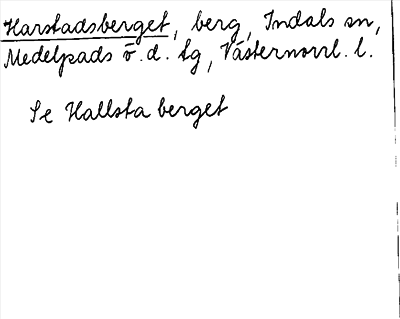 Harstadsberget, berg, Indals sn,
Medelpads v. d. tg, Västernorrl. l.
Se Hallsta berget